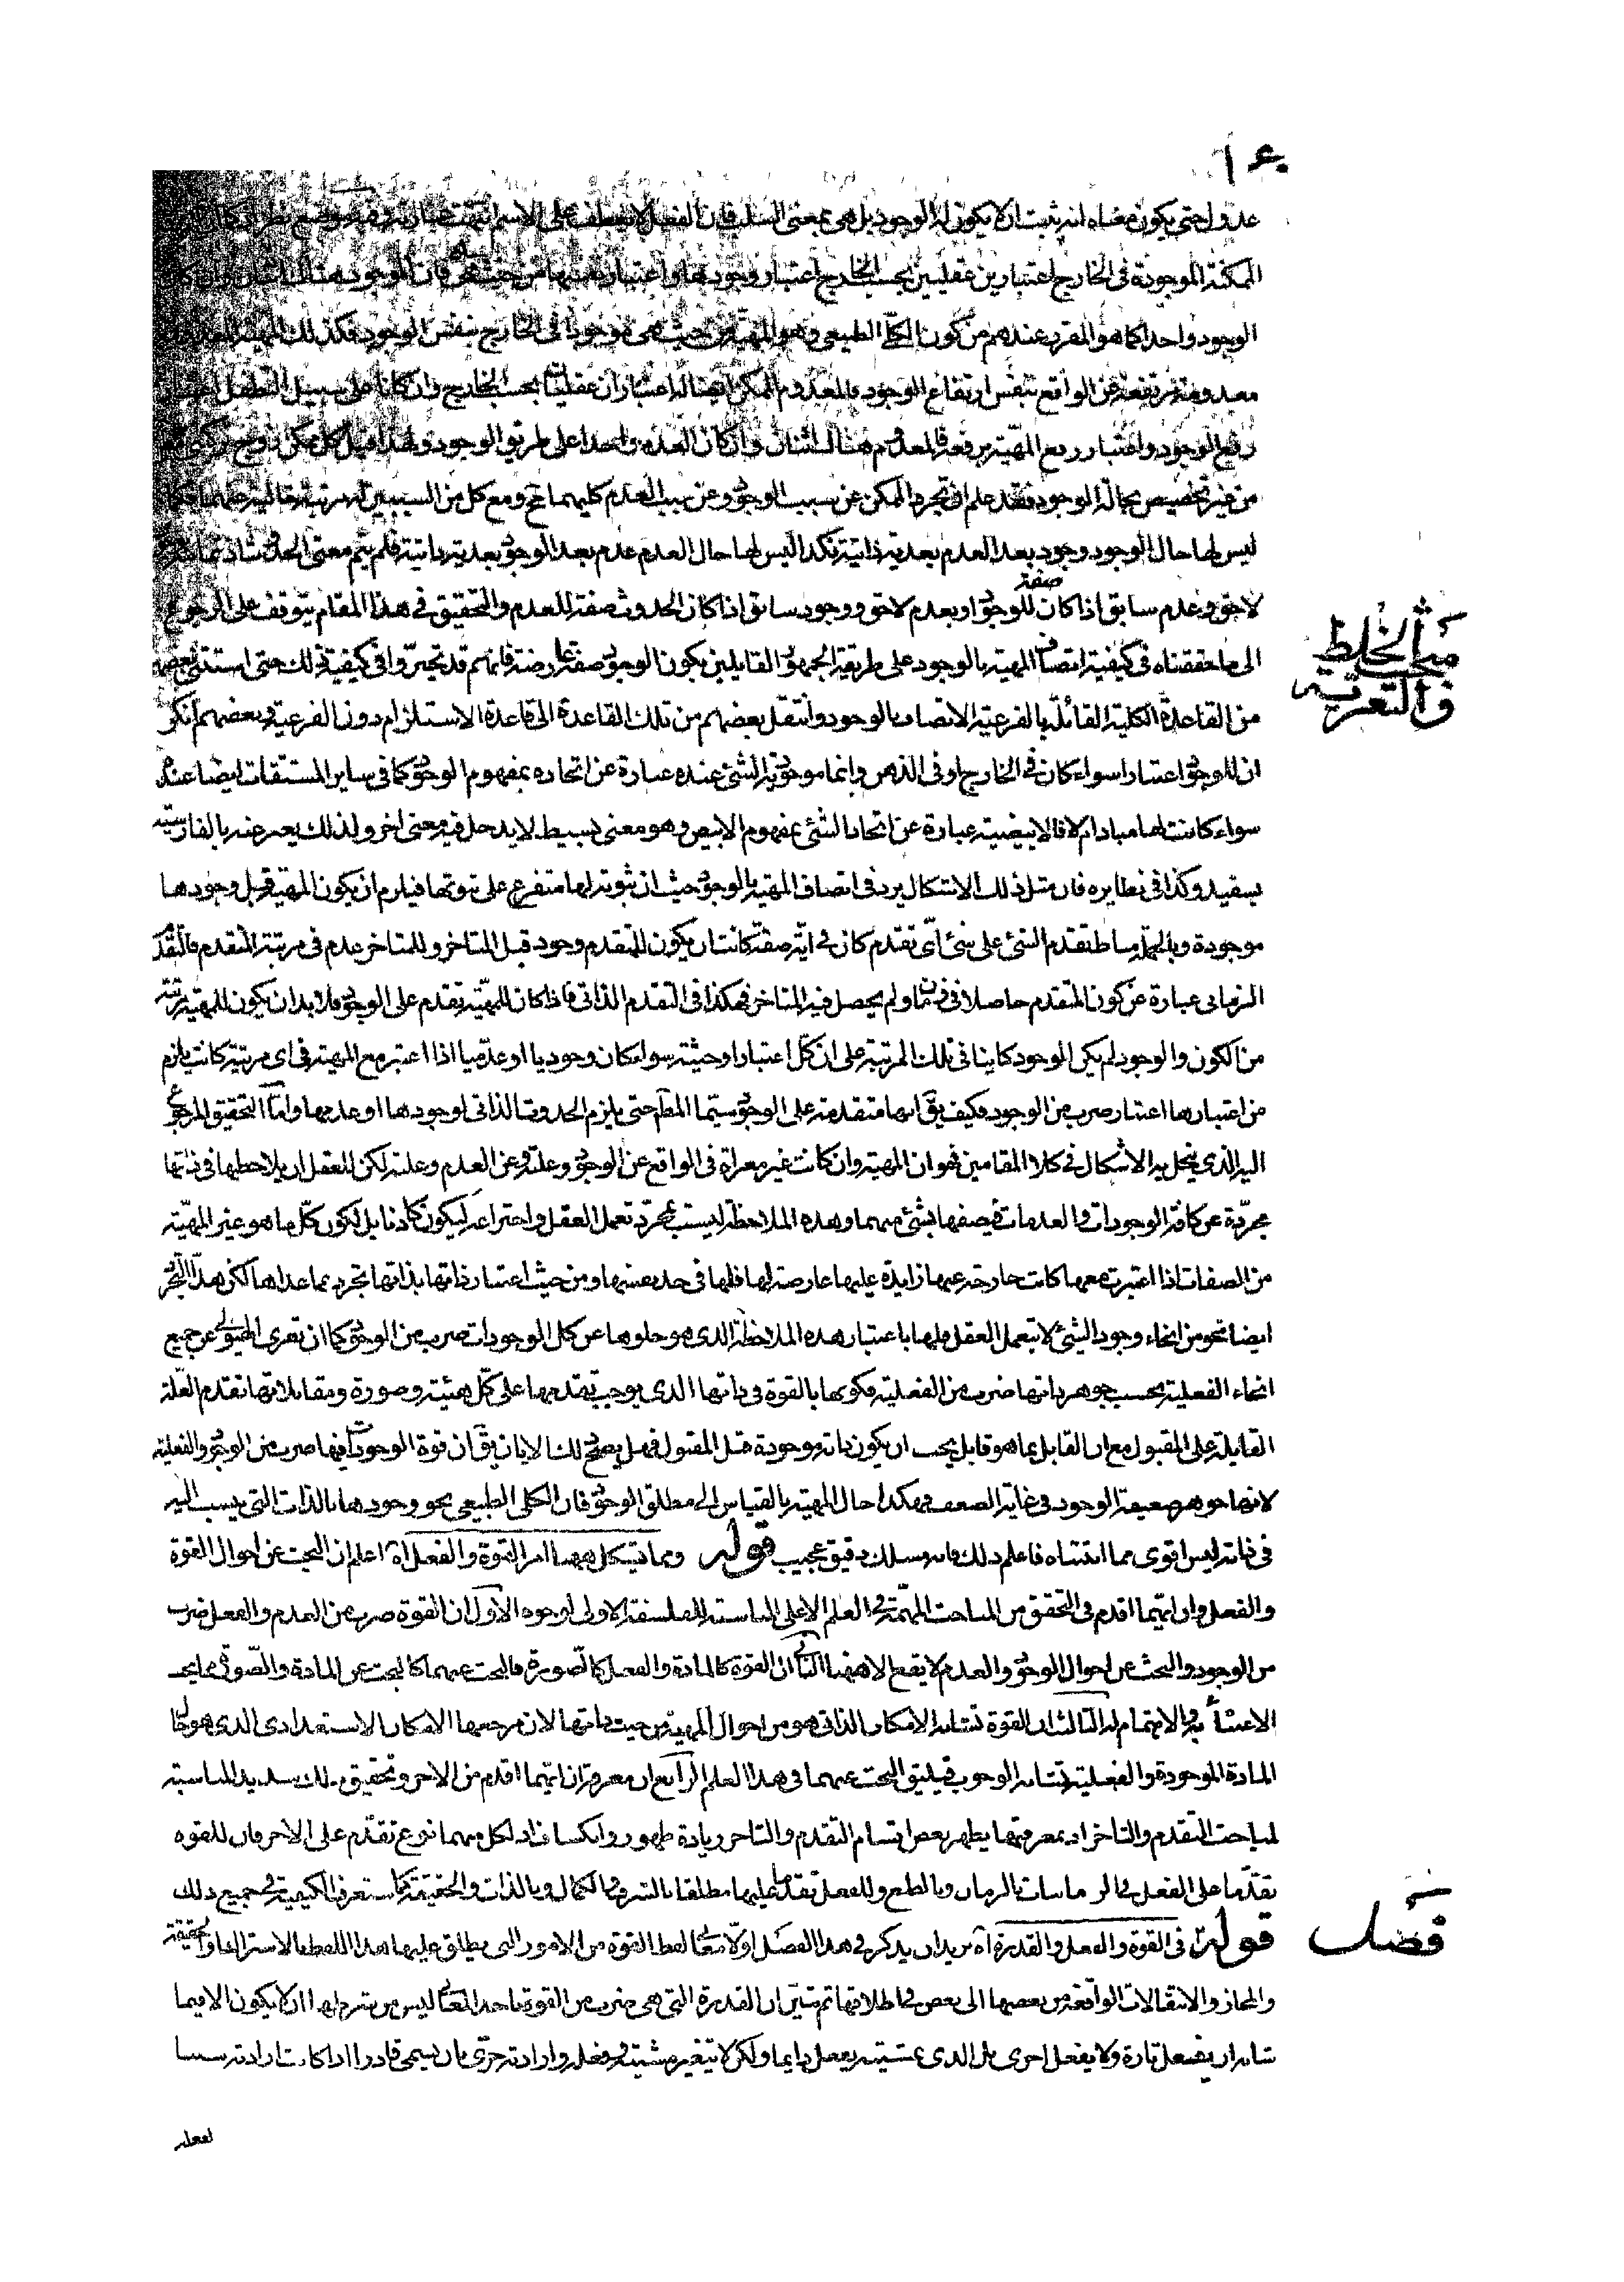 ١٦٠
عدولا حتى يكون معناه انه يثبت ان لا يكون له الوجود بل هى بمعنى السلب فان الفعل لا يعطف على الاسم
الممكنة الموجودة فى الخارج اعتبارين عقليين بحسب الخارج اعتبار وجودها واعتبار من حيث هى فان الموجود هناك اثنان وان كان
الوجود واحدا كما هو المقرر عندهم من كون الكلى الطبيعى وهو المهية من حيث هى موجودا فى الخارج بنفس الوجود فكذلك المهية
معدومة مرتفعة عن الواقع بنفس ارتفاع الوجود فالمعدوم الممكن ايضا له اعتباران عقليان بحسب الخارج وان كانا على سبيل التطفل
رفع الوجود واعتبار رفع المهية برفعه فالمعدوم هناك اثنان وان كان العدم واحدا على طريق الوجود ولهذا قيل كل ممكن زوج تركيبى
من غير تخصيص بحالة الوجود فقد علم ان تجرد الممكن عن سبب الوجود وعن سبب العدم كليهما مح ومع كل من السببين
ليس لها حال الوجود وجود بعد العدم بعدية ذاتية فكذا ليس لها حال العدم عدم بعد الوجود بعدية ذاتية فلم يتم معنى الحدوث
لاحق وعدم سابق اذا كان صفة للوجود او بعدم لاحق ووجود سابق اذا كان الحدوث صفة للعدم والتحقيق فى هذا المقام يتوقف على الرجوع
الى ما حققناه فى كيفية اتصاف المهية بالوجود على طريقة الجمهور القايلين بكون الوجود صفة عارضة فانهم قد تحيروا فى كيفية ذلك حتى استثنى بعضهم
مبحث الخلط
والتعرية
من القاعدة الكلية القائلة بالفرعية الاتصاف بالوجود وانتقل بعضهم من تلك القاعدة الى قاعدة الاستلزام دون الفرعية وبعضهم انكر
ان للوجود اعتبارا سواء كان فى الخارج او فى الذهن وانما موجودية الشئ عنده عبارة عن اتحاده بمفهوم الموجود كما فى ساير المشتقات ايضا عنده
سواء كانت لها مباد ام لا فالابيضية عبارة عن اتحاد الشئ بمفهوم الابيض وهو معنى بسيط لا يدخل فيه معنى اخر ولذلك يعبر عنه بالفارسية
بسفيد وكذا فى نظايره فان مثل ذلك الاشكال يرد فى اتصاف المهية بالوجود حيث ان ثبوته لها متفرع على ثبوتها فيلزم ان يكون المهية قبل وجودها
موجودة وبالجملة مناط تقدم الشئ على شئ اى تقدم كان فى اية صفة كانت ان يكون للمتقدم وجود قبل المتاخر وللمتاخر عدم فى مرتبة المتقدم فالتقدم
الزمانى عبارة عن كون المتقدم حاصلا فى زمان ما ولم يحصل فيه المتاخر فهكذا فى التقدم الذاتى فاذا كان للمهية تقدم على الوجود فلا بد ان يكون للمهية مرتبة
من الكون والوجود لم يكن الوجود كاينا فى تلك المرتبة على ان كل اعتبار او حيثية سواء كان وجوديا او عدميا اذا اعتبر مع المهية فى اى مرتبة كانت يلزم
من اعتبارها اعتبار ضرب من الوجود فكيف يق انها متقدمة على الوجود سيما المط حتى يلزم الحدوث الذاتى لوجودها او عدمها واما التحقيق المرجوع
اليه الذى ينحل به الاشكال فى كلا المقامين فهو ان المهية وان كانت غير معراة فى الواقع عن الوجود وعلته وعن العدم وعلته لكن للعقل ان يلاحظها فى ذاتها
مجردة عن كافة الوجودات والعدمات فيصفها بشئ منهما وهذه الملاحظة ليست بمجرد تعمل العقل واختراعه ليكون كاذبا بل لكون كل ما هو غير المهية
من الصفات اذا اعتبرت معها كانت خارجة عنها زايدة عليها عارضة لها فلها فى حد نفسها ومن حيث اعتبار ذاتها بذاتها تجرد عما عداها لكن هذا التجرد
ايضا نحو من انحاء وجود الشئ لا بتعمل العقل فلها باعتبار هذه الملاحظة الذى هو خلوها عن كل الوجودات ضرب من الوجود كما ان تعرى الهيولى عن جميع
انحاء الفعلية بحسب جوهر ذاتها ضرب من الفعلية فكونها بالقوة فى ذاتها الذى يوجب تقدمها على كل هيئة وصورة ومقابلاتها تقدم العلة
القابلة على المقبول مع ان القابل بما هو قابل يجب ان يكون ذاته موجودة قبل المقبول فهل يصح ذلك الا بان يق ان قوة الوجودات فيها ضرب من الوجود والفعلية
لانها جوهر ضعيفة الوجود فى غاية الضعف فهكذا حال المهية بالقياس الى مطلق الوجود فان الكلى الطبيعى نحو وجودها بالذات التى ينسب اليه
فى ذاته ليس اقوى مما اثبتناه فاعلم ذلك فانه مسلك دقيق عجيب قوله ومما يشكل ههنا امر القوة والفعل اه اعلم ان البحث عن احوال القوة
والفعل وان ايتهما اقدم فى التحقق من المباحث المهمة فى العلم الاعلى المناسبة للفلسفة الاولى لوجوه الاول ان القوة ضرب من العدم والفعل ضرب
من الوجود والبحث عن احوال الوجود والعدم لا يقع الا ههنا الثانى ان القوة كالمادة والفعل كالصورة فالبحث عنهما كالبحث عن المادة والصورة مما يجب
الاعتناء به والاهتمام له الثالث ان القوة تشابه الامكان الذاتى هو من احوال المهية من حيث ذاتها لان مرجعها الامكان الاستعدادى الذى هو حال
المادة الموجودة والفعلية تشابه الوجوب فيليق البحث عنهما فى هذا العلم الرابع ان معرفة ان ايتهما اقدم من الاخر وتحقيق ذلك شديد المناسبة
لمباحث التقدم والتاخر اذ بمعرفتها يظهر بعض اقسام التقدم والتاخر زيادة ظهور وانكشاف اذ لكل منهما نوع تقدم على الاخر فان للقوه
تقدما على الفعل فى الزمانيات بالزمان وبالطبع وللفعل تقدما عليها مطلقا بالشرف والكمال وبالذات والحقيقة كما ستعرف الكيفية فى جميع ذلك
فصل
قوله فى القوة والفعل والقدرة اه يريد ان يذكر فى هذا الفصل اولا معانى لفظ القوة من الامور التى يطلق عليها هذا اللفظ بالاشتراك او الحقيقة
والمجاز والانتقالات الواقعة من بعضها الى بعض فى اطلاقها ثم تبين ان القدرة التى هى ضرب من القوة باحد المعانى ليس من شرطها ان لا يكون الا فيما
شانه ان يفعل تارة ولا يفعل اخرى بل الذى بمشيته يفعل دايما ولكن لا يتغير مشيته فى فعله وارادته حرى بان يسمى قادرا اذا كانت ارادته سببا
لفعله